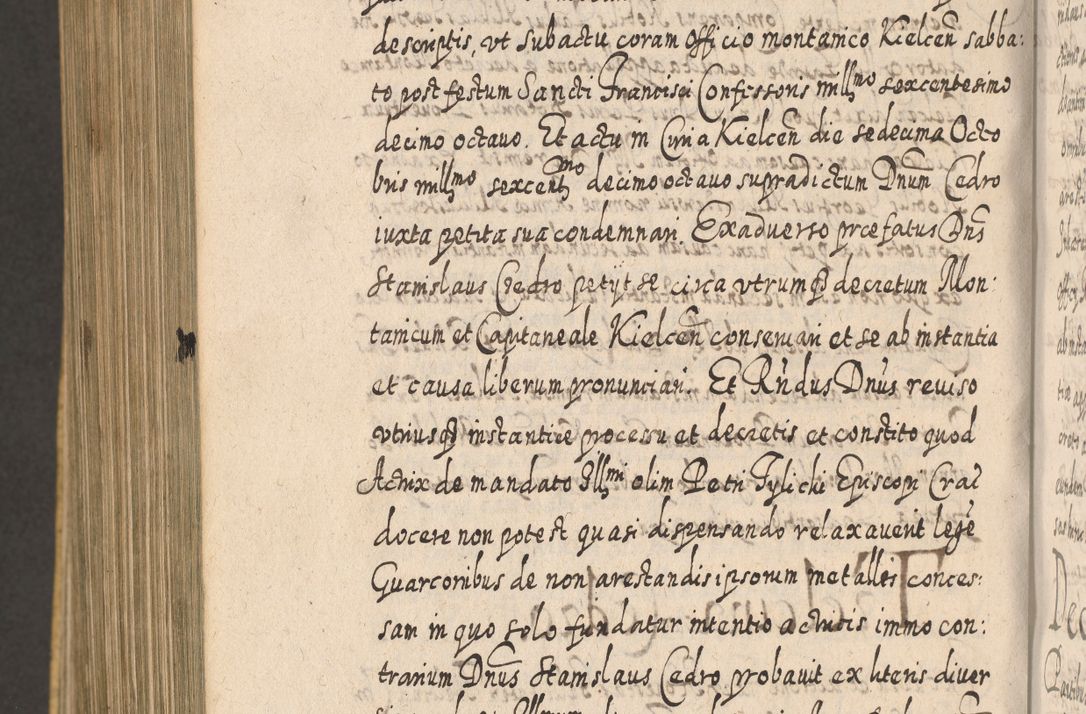 descriptis, vt subactu coram Officio montanico Kielcen̄ sabba:
to post festum Sancti Francisci Confessoris millmo sexcentesimo
decimo octavo. Et actu in Curia Kielcen̄ die sedecima Octo
bris millmo sexcentmo decimo octavo supradictum Dnum̄ Cedro
iuxta petita sua condemnari. Ex adverso præfatus Dn̄s
Stanislaus Cedro petijt se circa vtrumq decretum Mon:
tanicum et Capitaneale Kielcen̄ conservari et se ab instantia
et causa liberum pronunciari. Et Rn̄dus Dn̄us reviso
vtriusq instantiæ processu et decretis et constito quod
Actrix de mandato Illmi olim Petri Tylicki Episcopi Crac̄
docere non potest quasi dispensando relaxaverit legē
Guarconibus de non arestandis ipsorum metallis conces:
sam in quo solo fundatur intentio actricis immo con:
trarium Dn̄us Stanislaus Cedro probavit ex literis diver